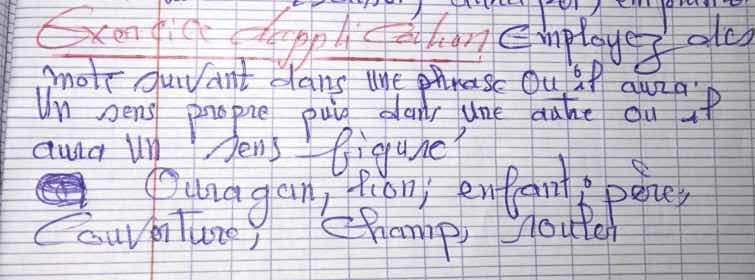 Exercice d'application Employez des
mots suivant dans une phrase ou il aura
Un sens propre puis dans une autre ou il
aura un sens figuré
Ouragan, lion, enfant, père,
Couverture, champ, rouler